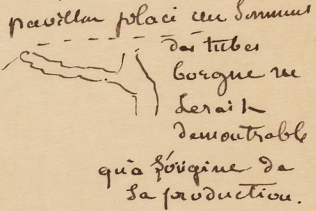 pavillon placé au sommet
des tubes
borgne ne
serait
demontrable
qu'à l'origine de
sa production.